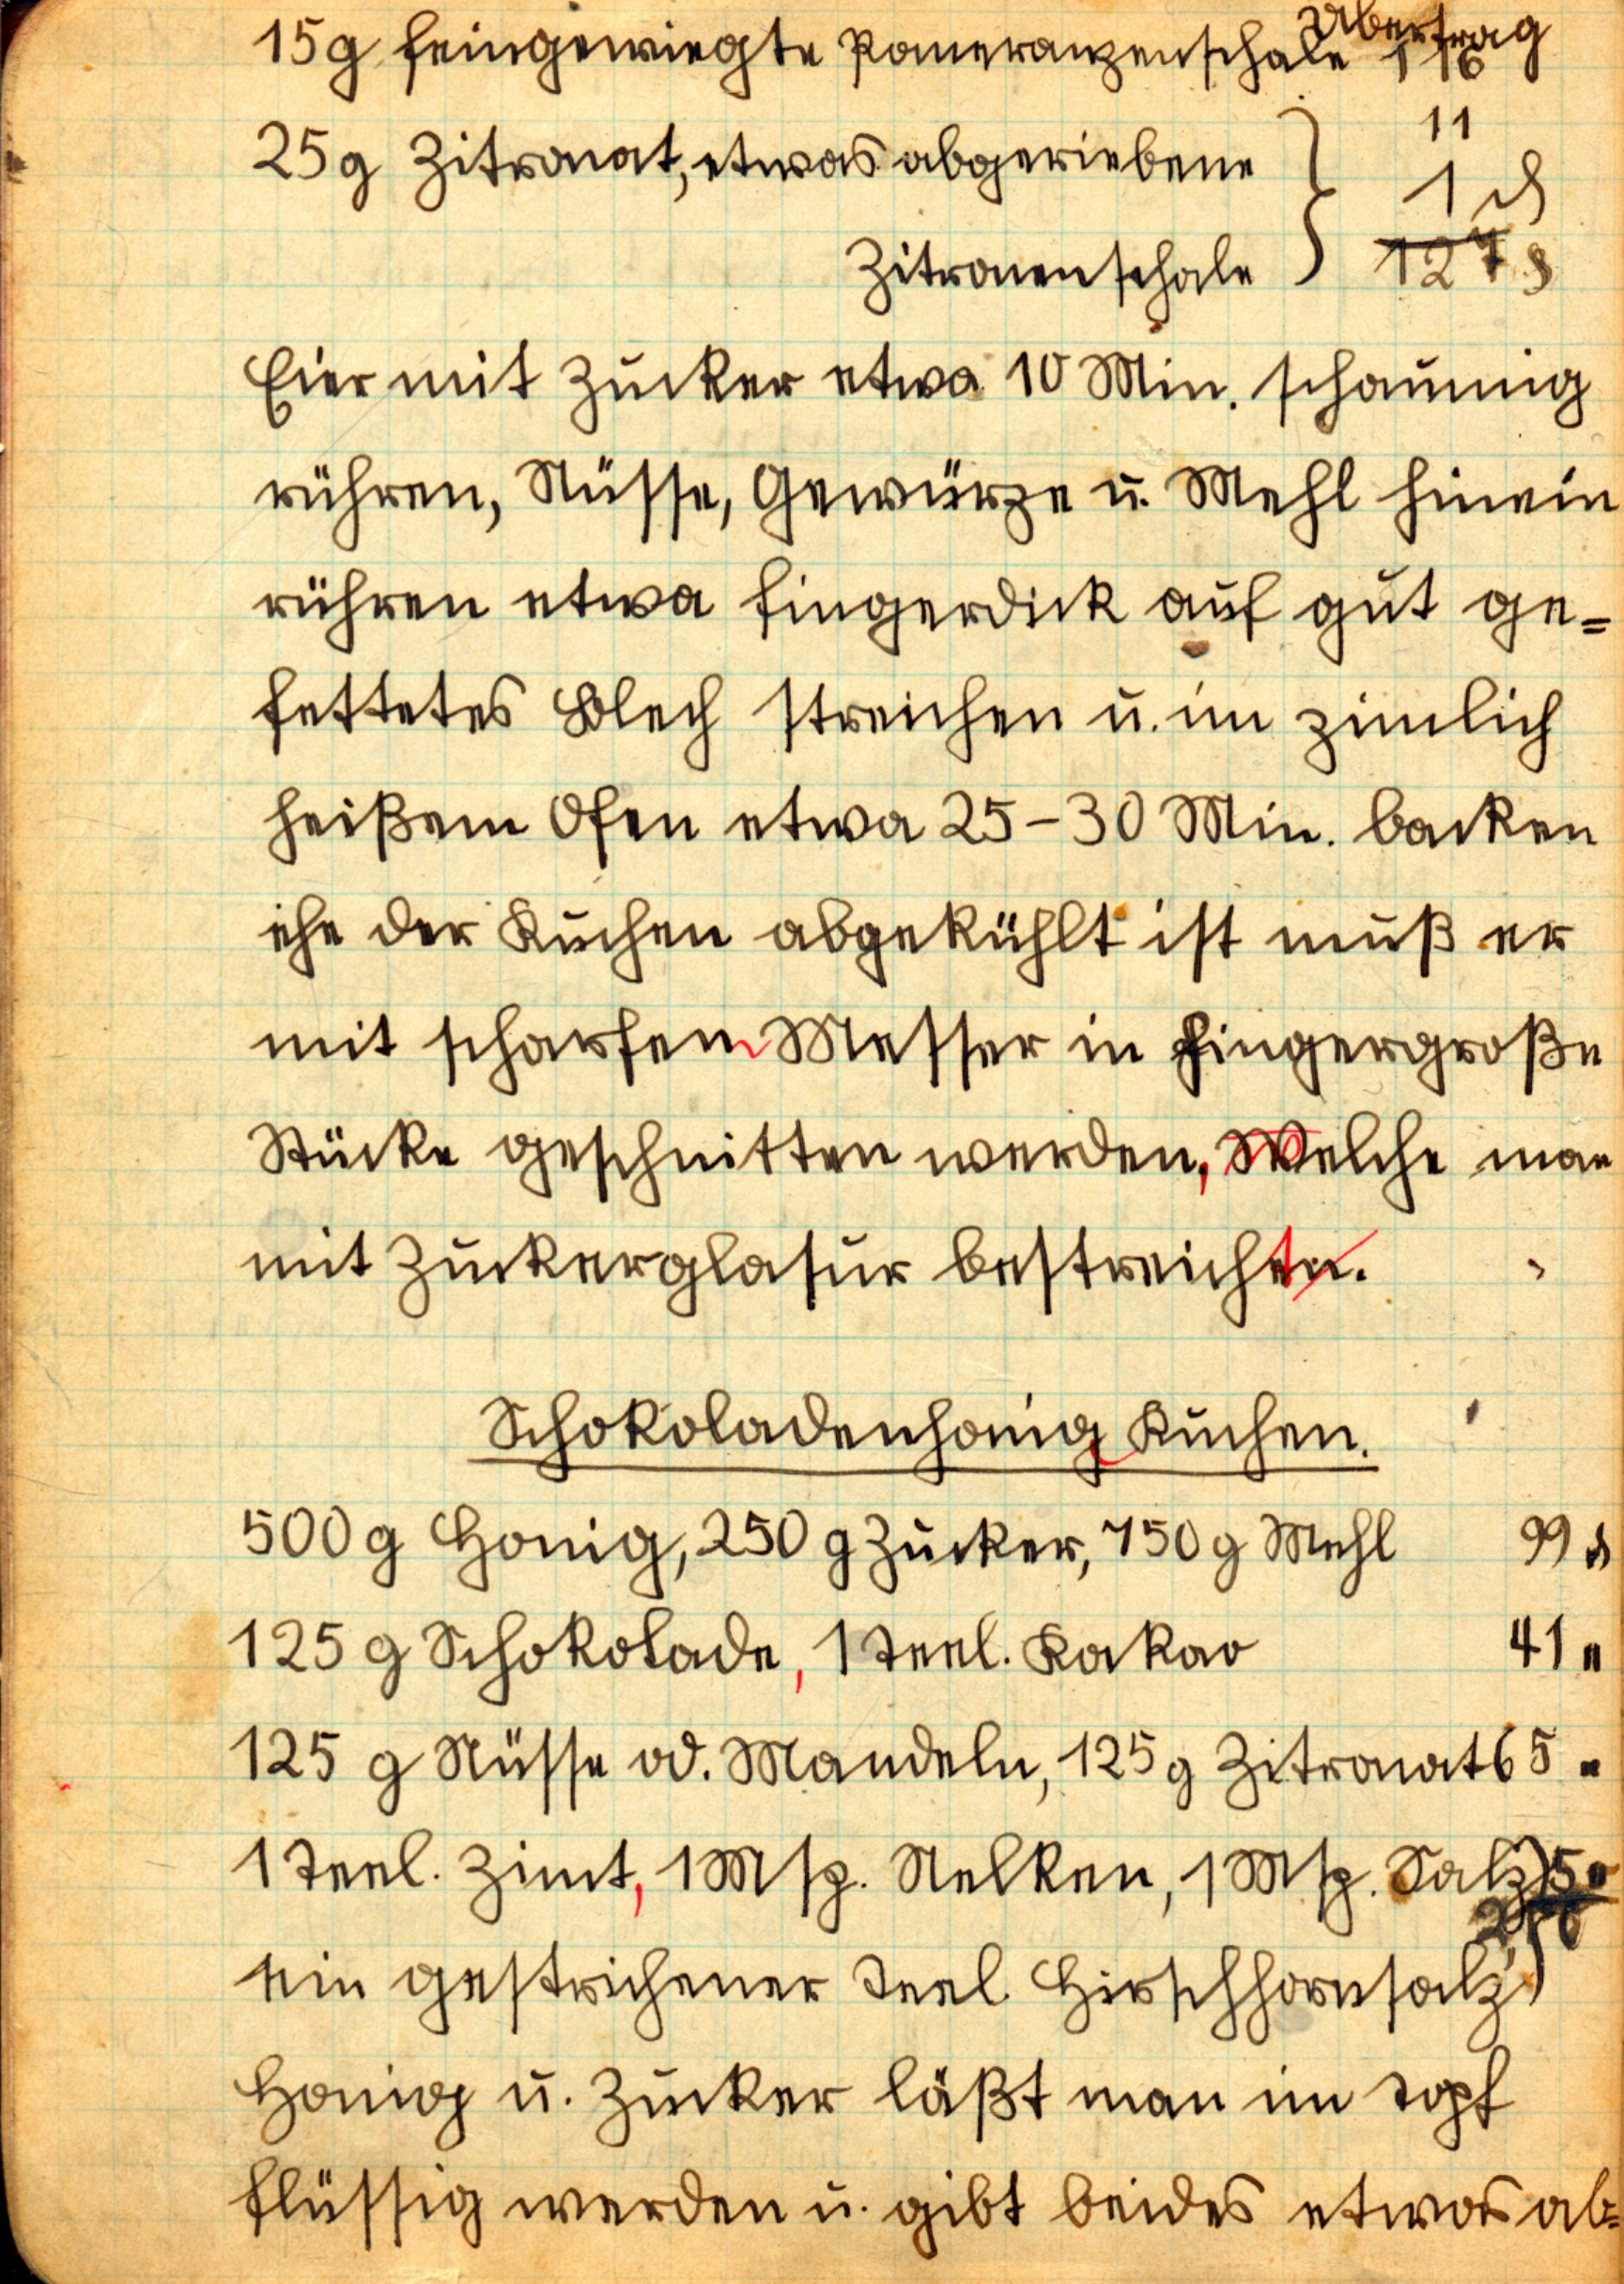 Übertrag
15g feingewiegte Pomeranzenschale 116
25g Zitronat, etwas abgeriebene } 11
1 ₰
Zitronenschale 127 ₰
Eier mit Zucker etwa 10 Min. schaumig
rühren, Nüsse, Gewürze u. Mehl hinein
rühren etwa fingerdick auf gut ge=
fettetes Blech streichen u. im zimlich
heißem Ofen etwa 25-30 Min. backen
ehe der Kuchen abgekühlt ist muß er
mit scharfem Messer in fingergroße
Stücke geschnitten werden, Welche man
mit Zuckerglasur bestreicht.
Schokoladenhonig Kuchen.
500g Honig, 250 g Zucker, 750g Mehl 99 ₰
125 g Schokolade, 1 Teel. Kakao 41 "
125 g Nüsse od. Mandeln, 125g Zitronat 65 "
1 Teel. Zimt, 1 Msp. Nelken, 1 Msp. Salz) 5 "
ein gestrichener Teel. Hirschhornsalz)
Honig u. Zucker läßt man im Topf
flüssig werden u. gibt beides etwas ab=